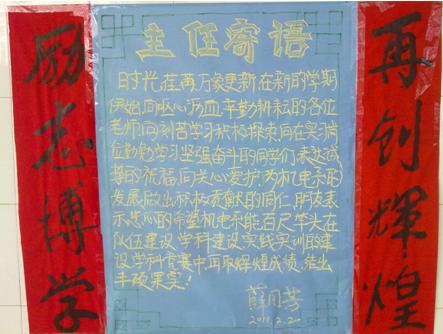 励志博学
主任寄语
时光荏苒万象更新,在新的学期
伊始,向呕心沥血辛勤耕耘的各位
老师,向刻苦学习积极探索,向在实习岗
位勤勉学习坚强奋斗的同学们表达诚
挚的祝福,向关心爱护,为机电系的
发展做出积极贡献的同仁,朋友表
示忠心的希望机电系能百尺竿头在
队伍建设,学科建设实践实训的建
设学科竞赛中再取辉煌成绩,结出
丰硕果实!
薛同芳
2011.2.20
再创辉煌